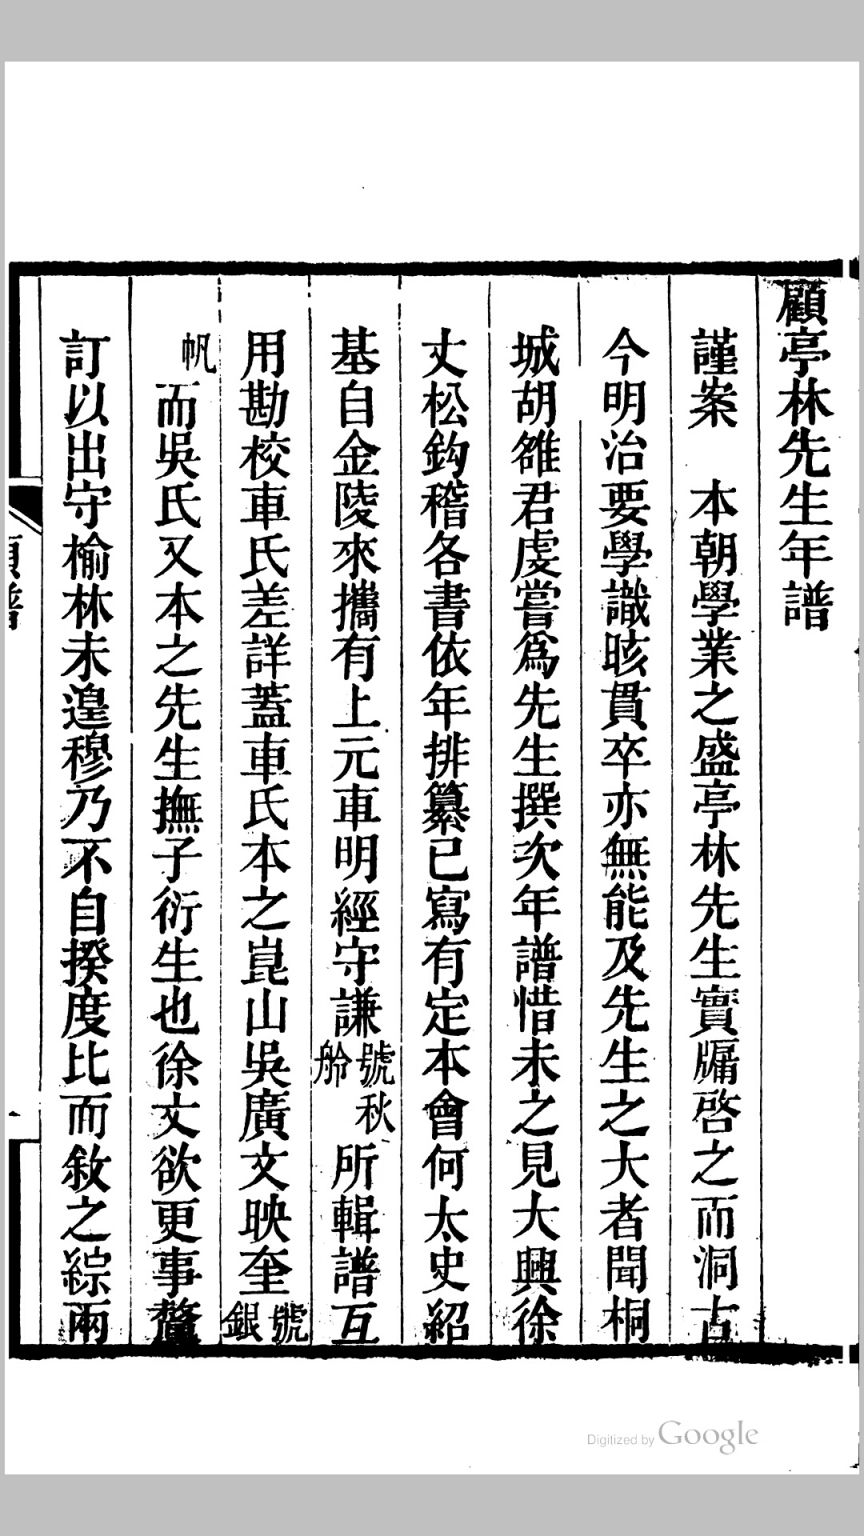 顧亭林先生年譜
謹案　本朝學業之盛亭林先生實牖啓之而洞古
今明治要學識晐貫卒亦無能及先生之大者聞桐
城胡雒君虔嘗爲先生撰次年譜惜未之見大興徐
丈松鈎稽各書依年排纂已寫有定本會何太史紹
基自金陵來攜有上元車明經守謙號秋舲所輯譜互
用勘校車氏差詳蓋車氏本之崑山吳廣文映奎號銀
帆而吳氏又本之先生撫子衍生也徐丈欲更事釐
訂以出守榆林未遑穆乃不自揆度比而敘之綜兩
譜
Digitized by Google